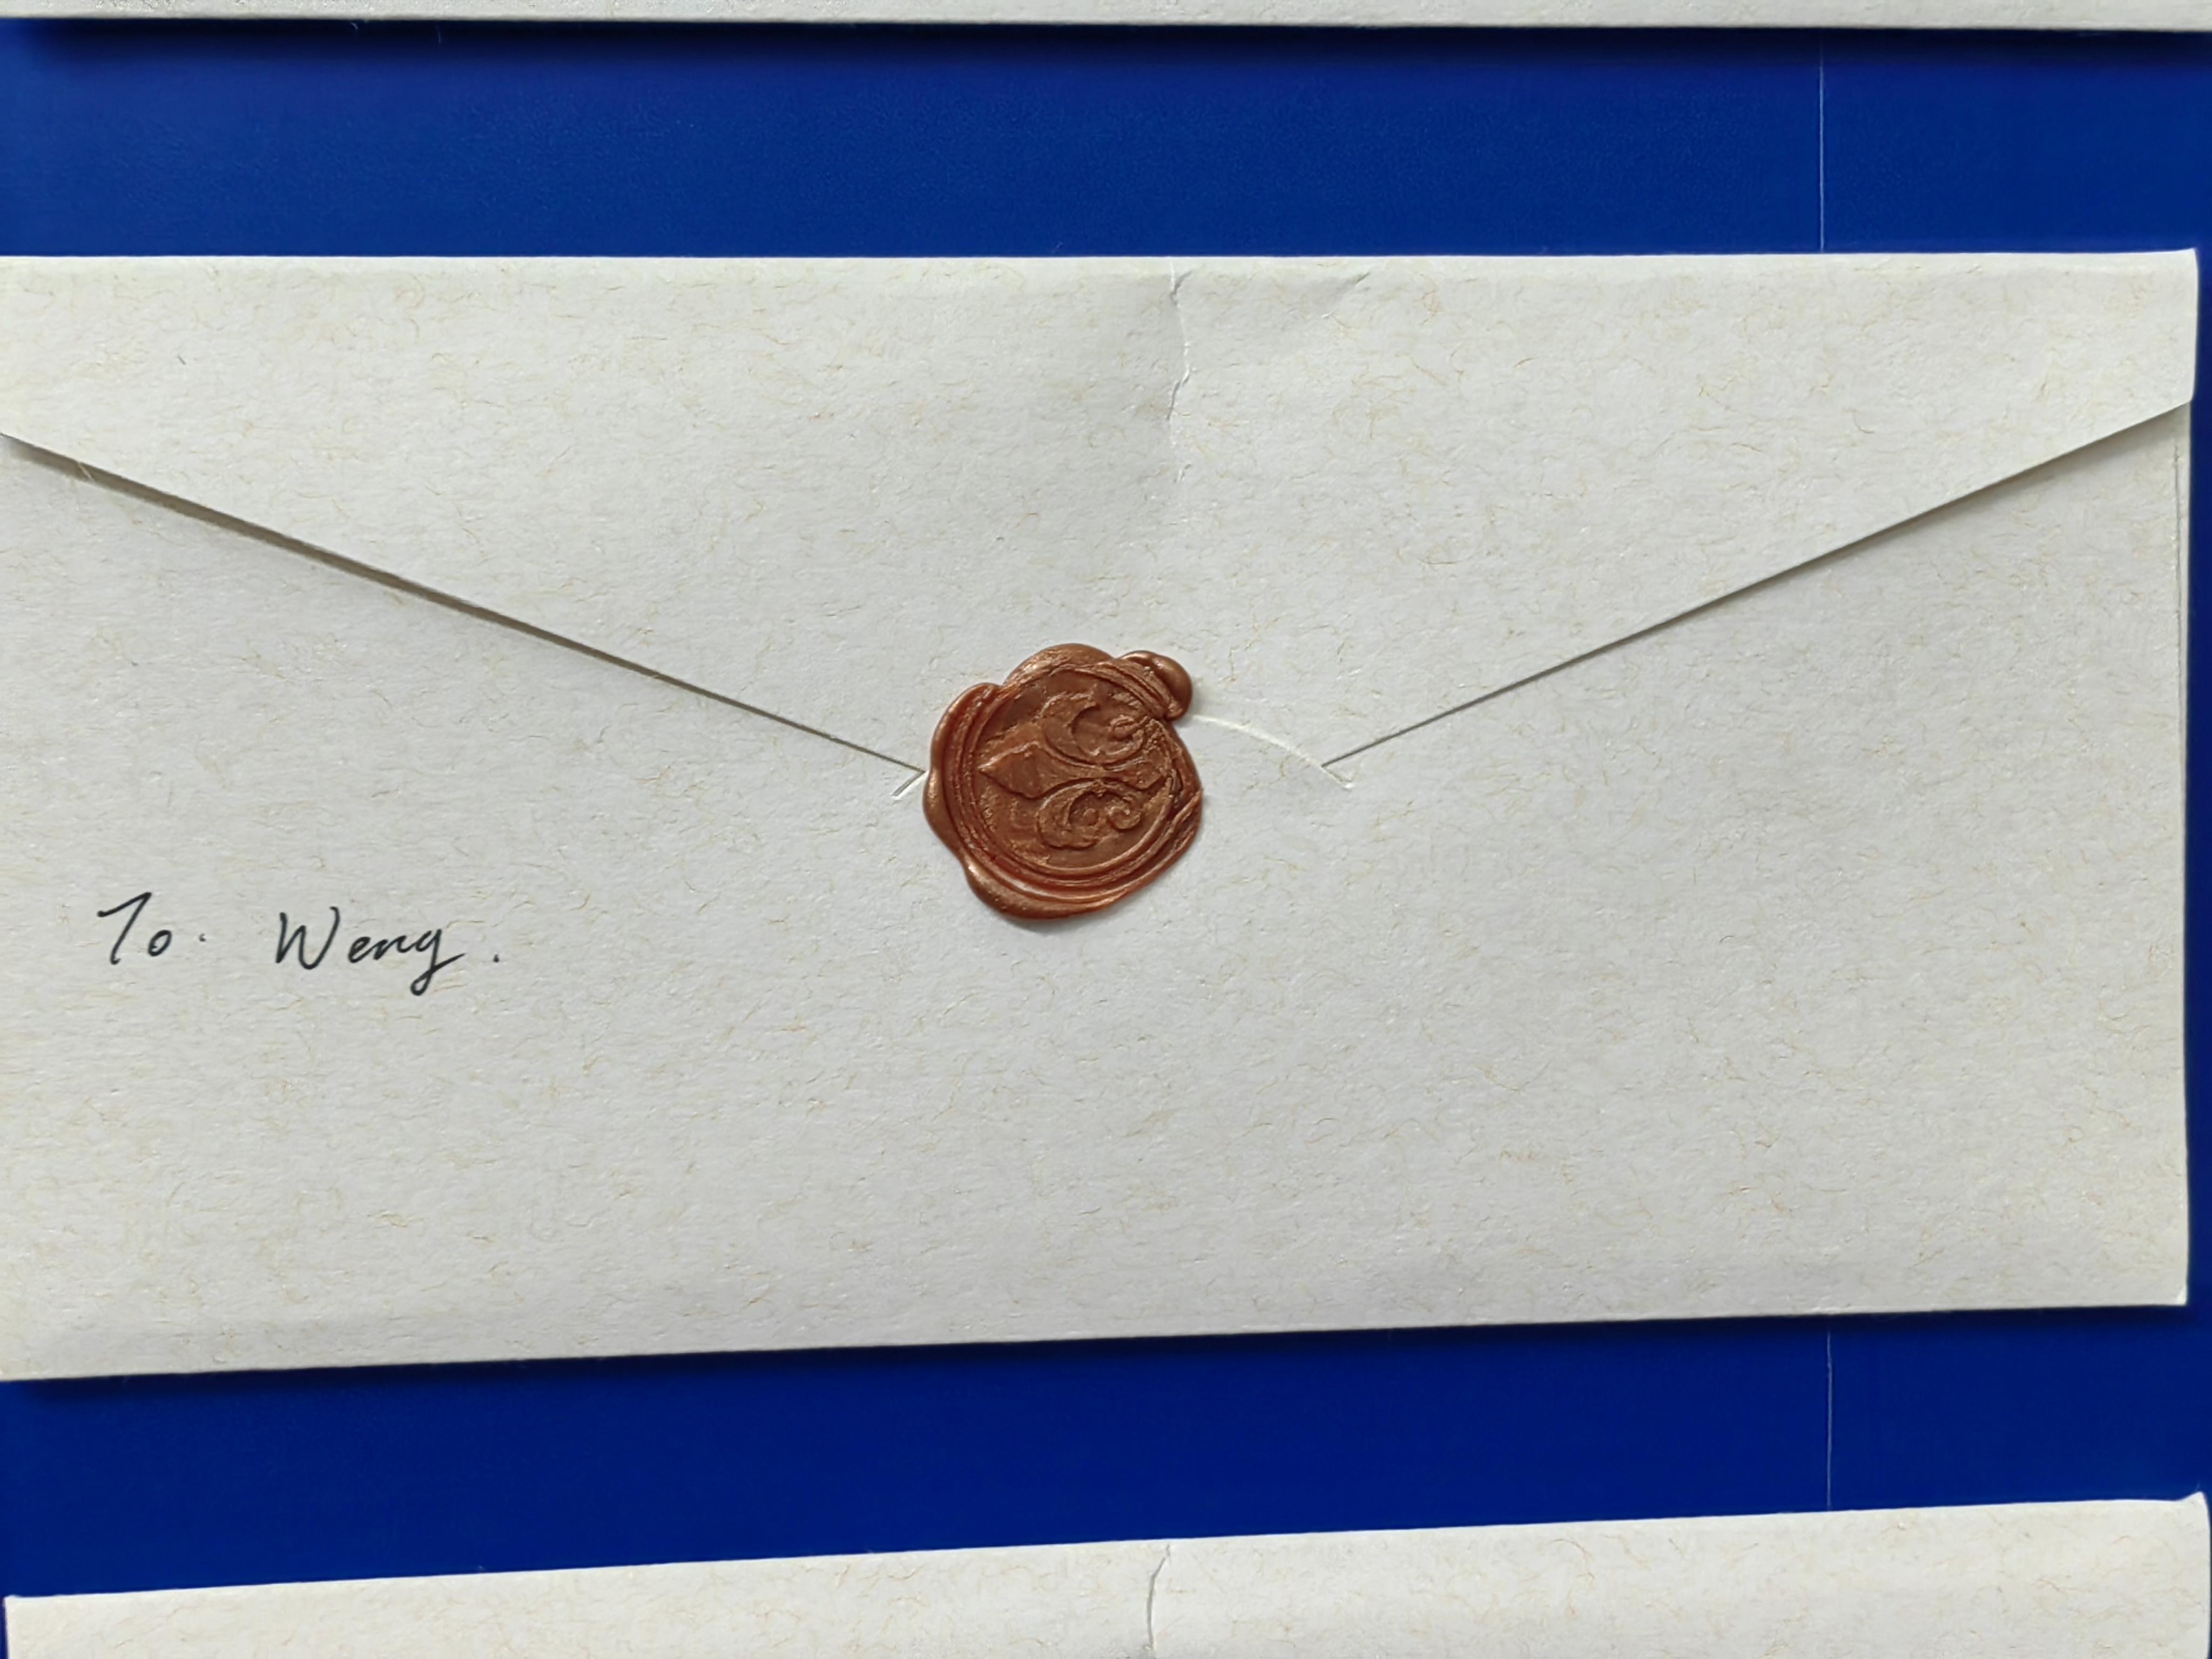 To. Weng.